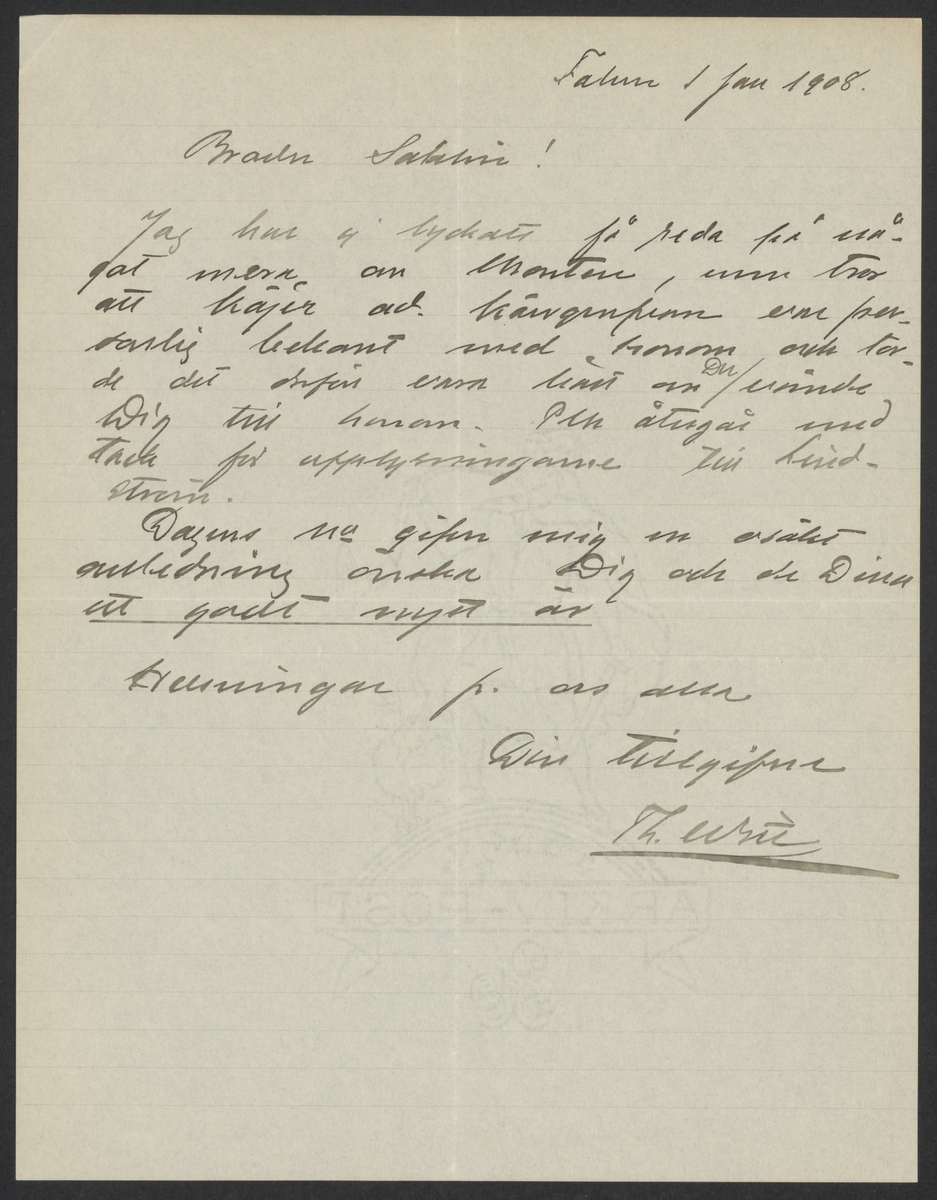 Falun 1 Jan 1908.
Broder Sahlin!
Jag har ej lyckats få reda på nå-
got mera om Monten, men tror
att Höjer ad. Kärrgrufvan var per-
sonlig bekant med honom och tor-
de det derför vara bäst om Du vände
Dig till honom. PM återgår med
tack för upplysningarne till Lind-
ström.
Dagens No gifver mig en osökt
anledning önska Dig och de Dina
ett godt nytt år
Helsningar fr. oss alla
Din tillgifne
Th.
ARKIV-POST